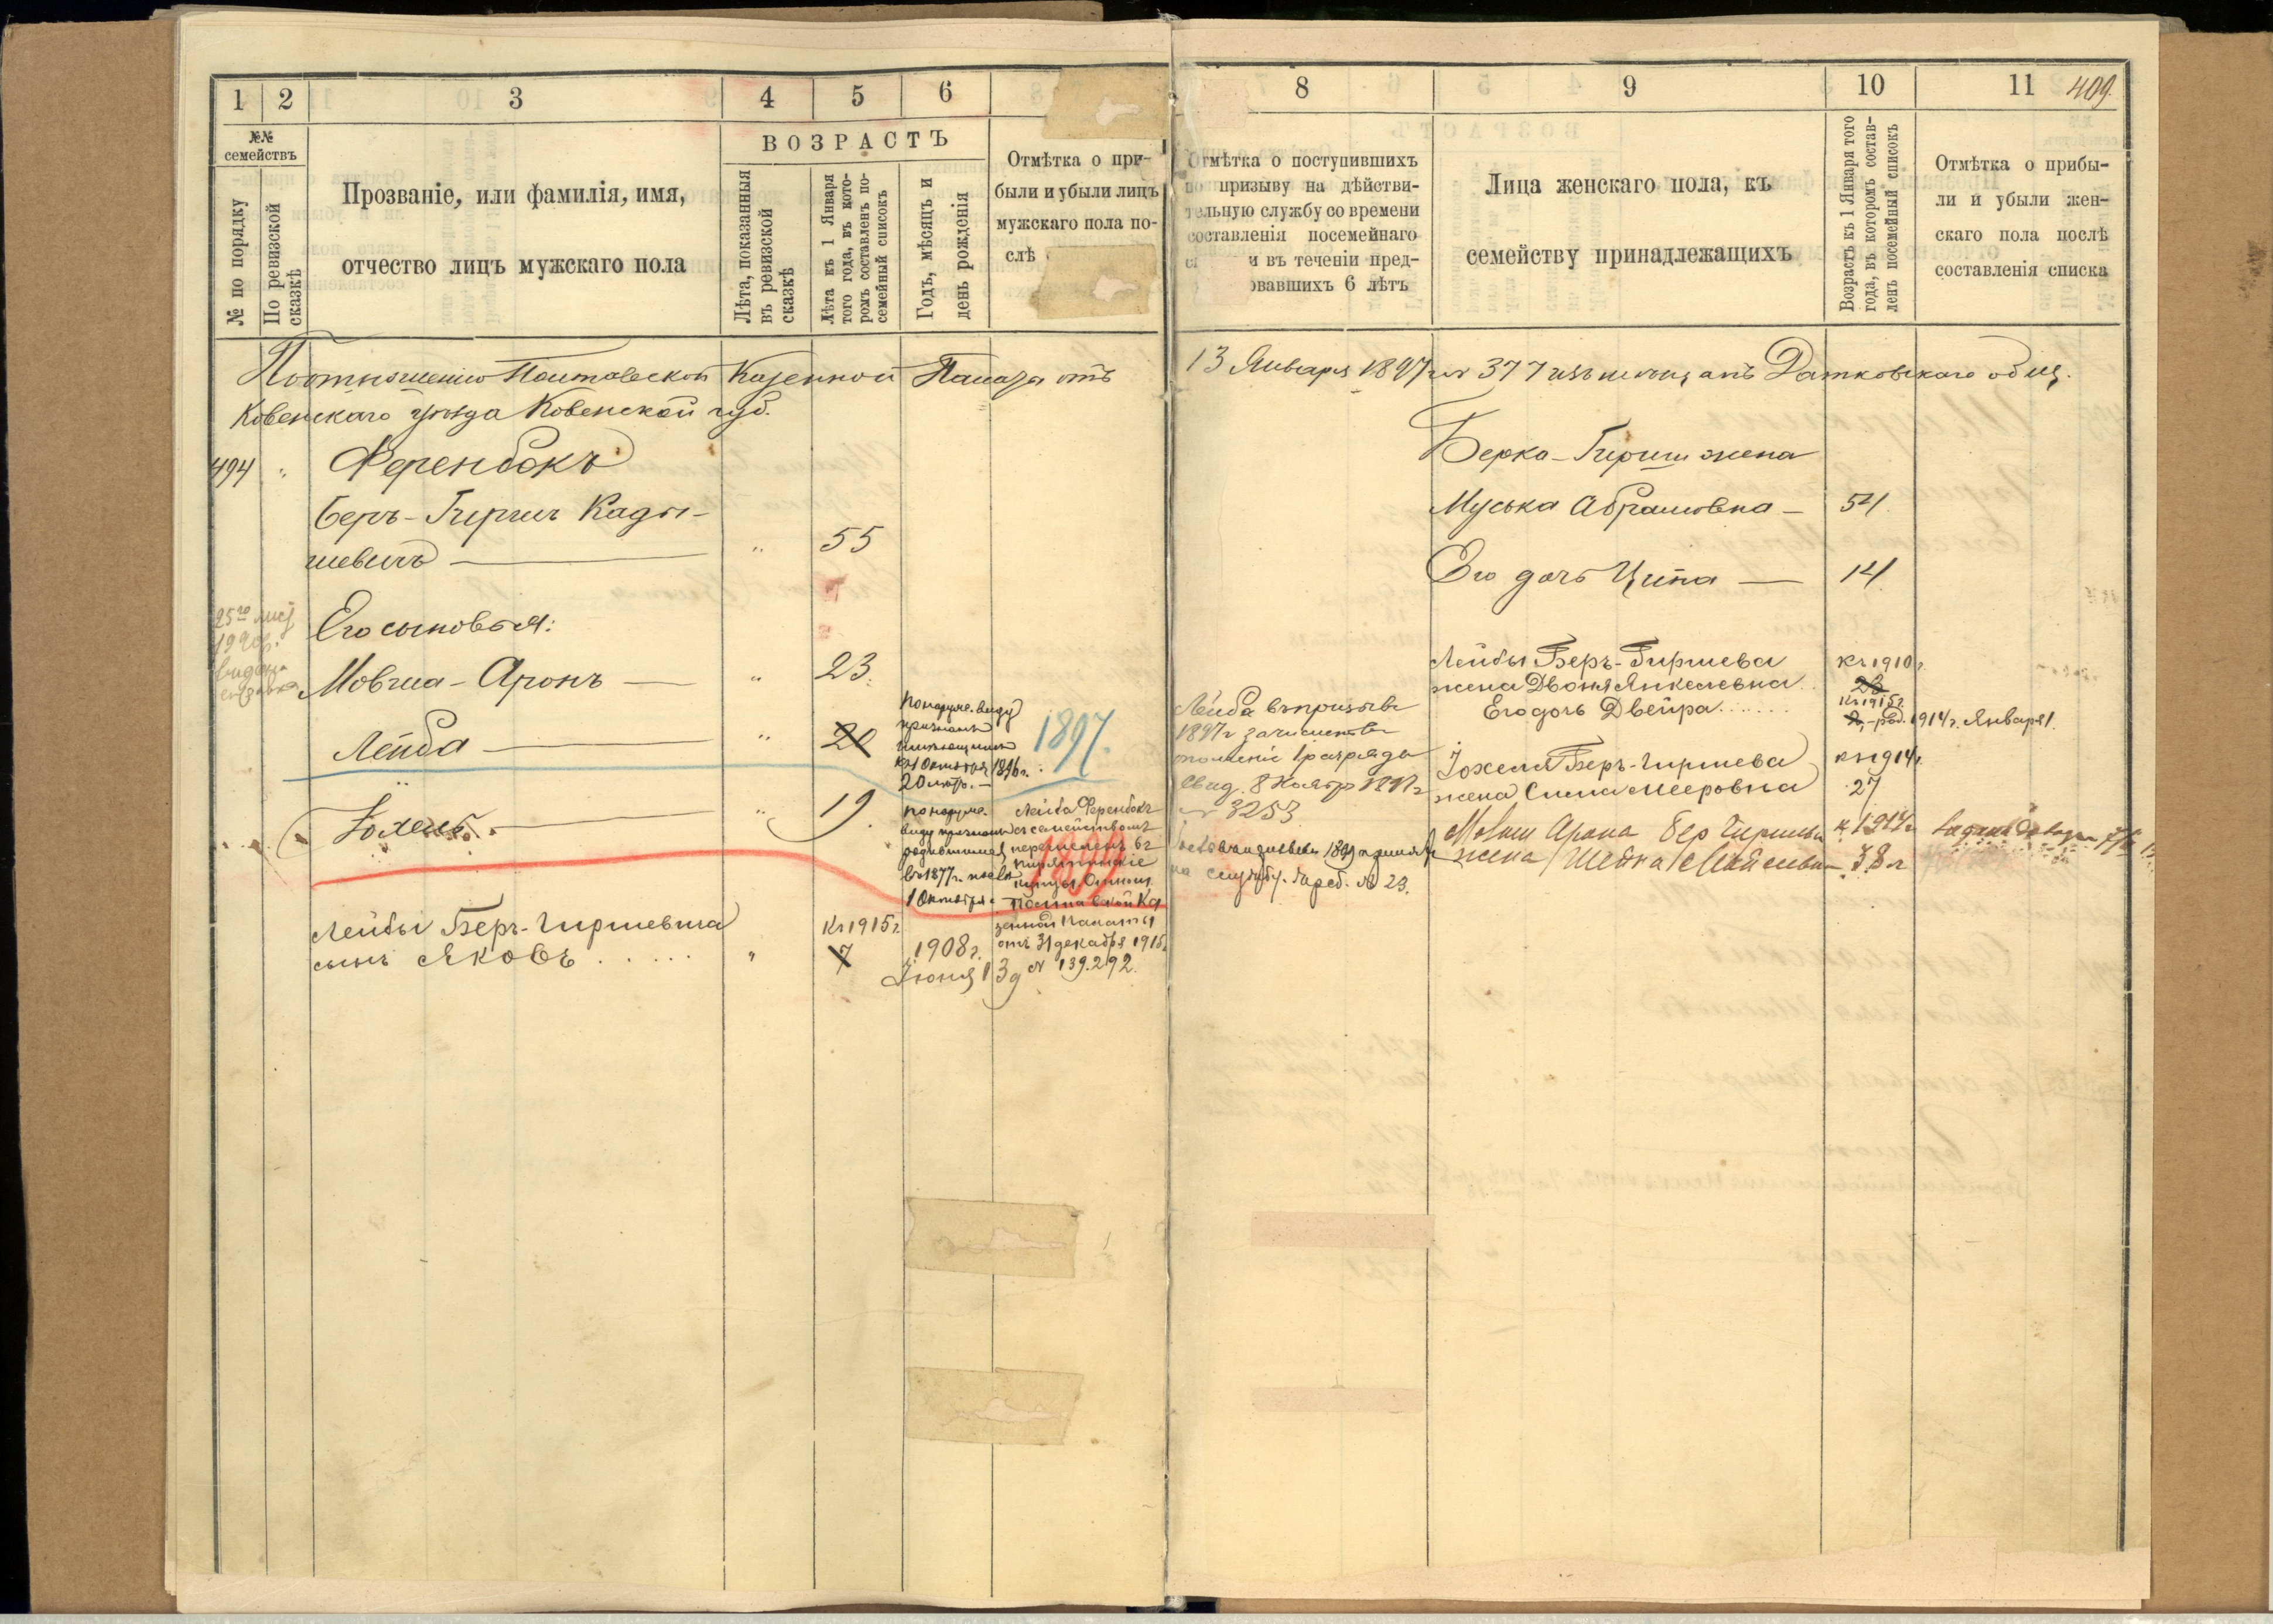 1 2 3 4 5 6
№№ семействъ
№ по порядку
По ревизской сказкѣ
Прозваніе, или фамилія, имя,
отчество лицъ мужскаго пола
ВОЗРАСТЪ
Лѣта, показанныя
въ ревизской
сказкѣ
Лѣта къ 1 Января
того года, въ кото-
ромъ составленъ по-
семейный списокъ
Годъ, мѣсяцъ и
день рожденія
Отмѣтка о при-
были и убыли лицъ
мужскаго пола по-
слѣ
8 9 10 11 409
Отмѣтка о поступившихъ
по призыву на дѣйстви-
тельную службу со времени
составленія посемейнаго
и въ теченіи пред-
овавшихъ 6 лѣтъ
Лица женскаго пола, къ
семейству принадлежащихъ
Возрастъ къ 1 Января того
года, въ которомъ состав-
ленъ посемейный списокъ
Отмѣтка о прибы-
ли и убыли жен-
скаго пола послѣ
составленія списка
По отношенію Полтавской Казенной Палаты отъ
13 Января 1897 г. № 377 изъ мѣщанъ Датновскаго общ.
Ковенскаго уѣзда Ковенской губ.
494 " Ференбокъ
Беръ-Гиршъ Кады-
шевичъ — " 55
25го
1920г.
Его сыновья:
Мовша-Аронъ — " 23.
Лейба — " 20
По наруж. виду
признанъ
имѣющимъ
къ 1 Октября 1896 г.
20 лѣтъ. —
1897.
Іохель. — " 19.
По наруж.
виду признанъ
родившимся
въ 1877 г. послѣ
1 Октября.
Лейба Ференбокъ
съ семействомъ
перечисленъ въ
Пирятинскіе
купцы. Отнош.
Полтавской Ка
зенной Палаты
отъ 31 декабря 1915 г.
№ 139.292.
1899
Лейбы Беръ-Гиршевича
сынъ Яковъ . . . . . "
Къ 1915 г.
7
1908 г.
Іюня 13 д.
Лейба въ призывъ
1897 г. зачисленъ въ
ополченіе 1 разряда
Свид. 8 Ноябр 1897 г.
№ 3253
въ призывъ 1899 г. принятъ
на службу. Жреб. № 23.
Берка-Гирша жена
Муська Абрамовна — 54
Его дочь Ципа — 14.
Лейбы Беръ-Гиршева
жена Двоня Янкелевна.
Къ 1910 г.
26
Его дочь Двейра . . . . . .
Къ 1915 г.
2,-род. 1914 г. Января 1.
Іохеля Беръ-Гиршева
жена Сима Мееровна
къ 1914 г.
27
Мовши Арона Бер Гиршевы
жена Шейна
к 1914 г
38 л